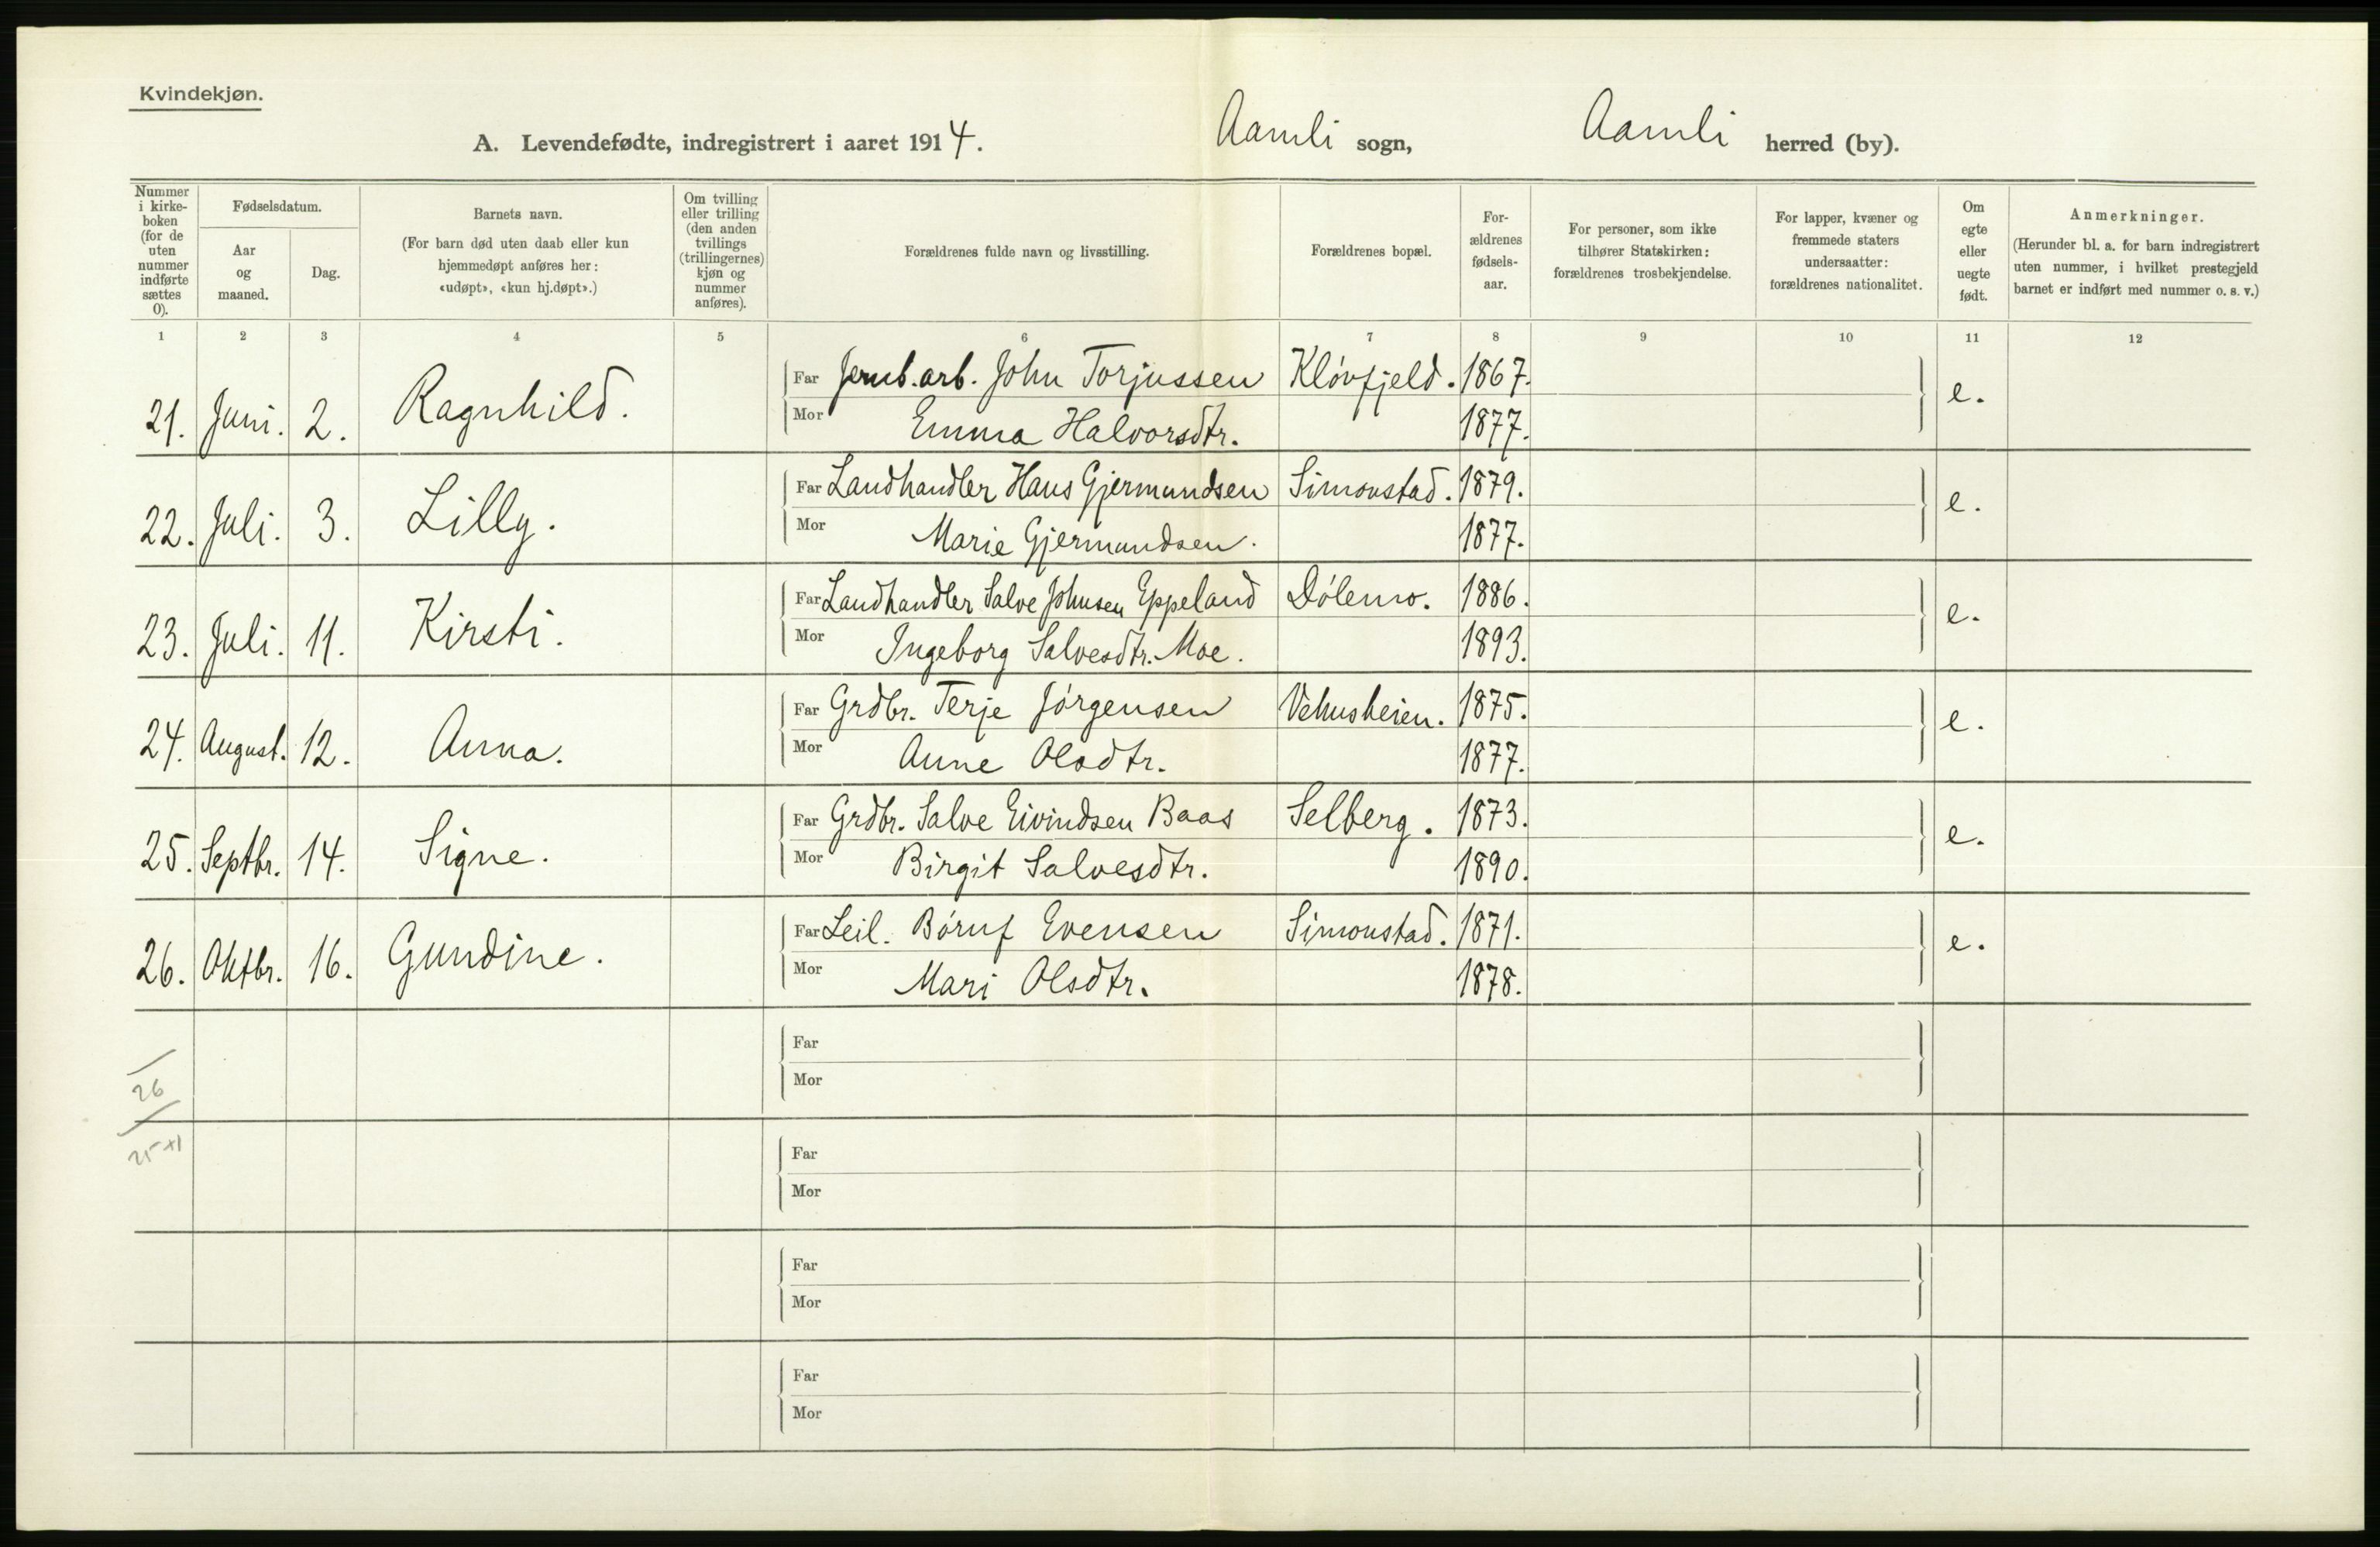 Kvindekjøn.
A. Levendefødte, indregistrert i aaret 1914.
Aamli sogn,
Aamli herred (by).
Nummer i kirke- boken (for de uten nummer indførte sættes 0).
Fødselsdatum.
Aar og maaned.
Dag.
Barnets navn.
(For barn død uten daab eller kun hjemmedøpt anføres her: «udøpt», «kun hj.døpt».)
Om tvilling eller trilling (den anden tvillings (trillingernes) kjøn og nummer anføres).
Forældrenes fulde navn og livsstilling.
Forældrenes bopæl.
For- ældrenes fødsels- aar.
For personer, som ikke tilhører Statskirken: forældrenes trosbekjendelse.
For lapper, kvæner og fremmede staters undersaatter: forældrenes nationalitet.
Om egte eller uegte født.
Anmerkninger.
(Herunder bl. a. for barn indregistrert uten nummer, i hvilket prestegjeld barnet er indført med nummer o. s. v.)
1 2 3 4 5 6 7 8 9 10 11 12
Far Jernb.arb. John Torjussen Kløvfjeld. 1867.
21. Juni. 2. Ragnhild. e.
Mor Emma Halvorsdtr. 1877.
Far Landhandler Hans Gjermundsen Simonstad. 1879.
22. Juli. 3. Lilly. e.
Mor Marie Gjermundsen. 1877.
Far Landhandler Salve Johnsen Eppeland Dølemo. 1886.
23. Juli. 11. Kirsti. e.
Mor Ingeborg Salvesdtr. Moe. 1893.
Far Grdbr. Terje Jørgensen Vehusheien. 1875.
24. August. 12. Anna. e.
Mor Anne Olsdtr. 1877.
Far Grdbr. Salve Eivindsen Baas Selberg. 1873.
25. Septbr. 14. Signe. e.
Mor Birgit Salvesdtr. 1890.
Far Leil. Børuf Evensen Simonstad. 1871.
26. Oktbr. 16. Gundine. e.
Mor Mari Olsdtr. 1878.
Far
Mor
26
Far
25 XI
Mor
Far
Mor
Far
Mor